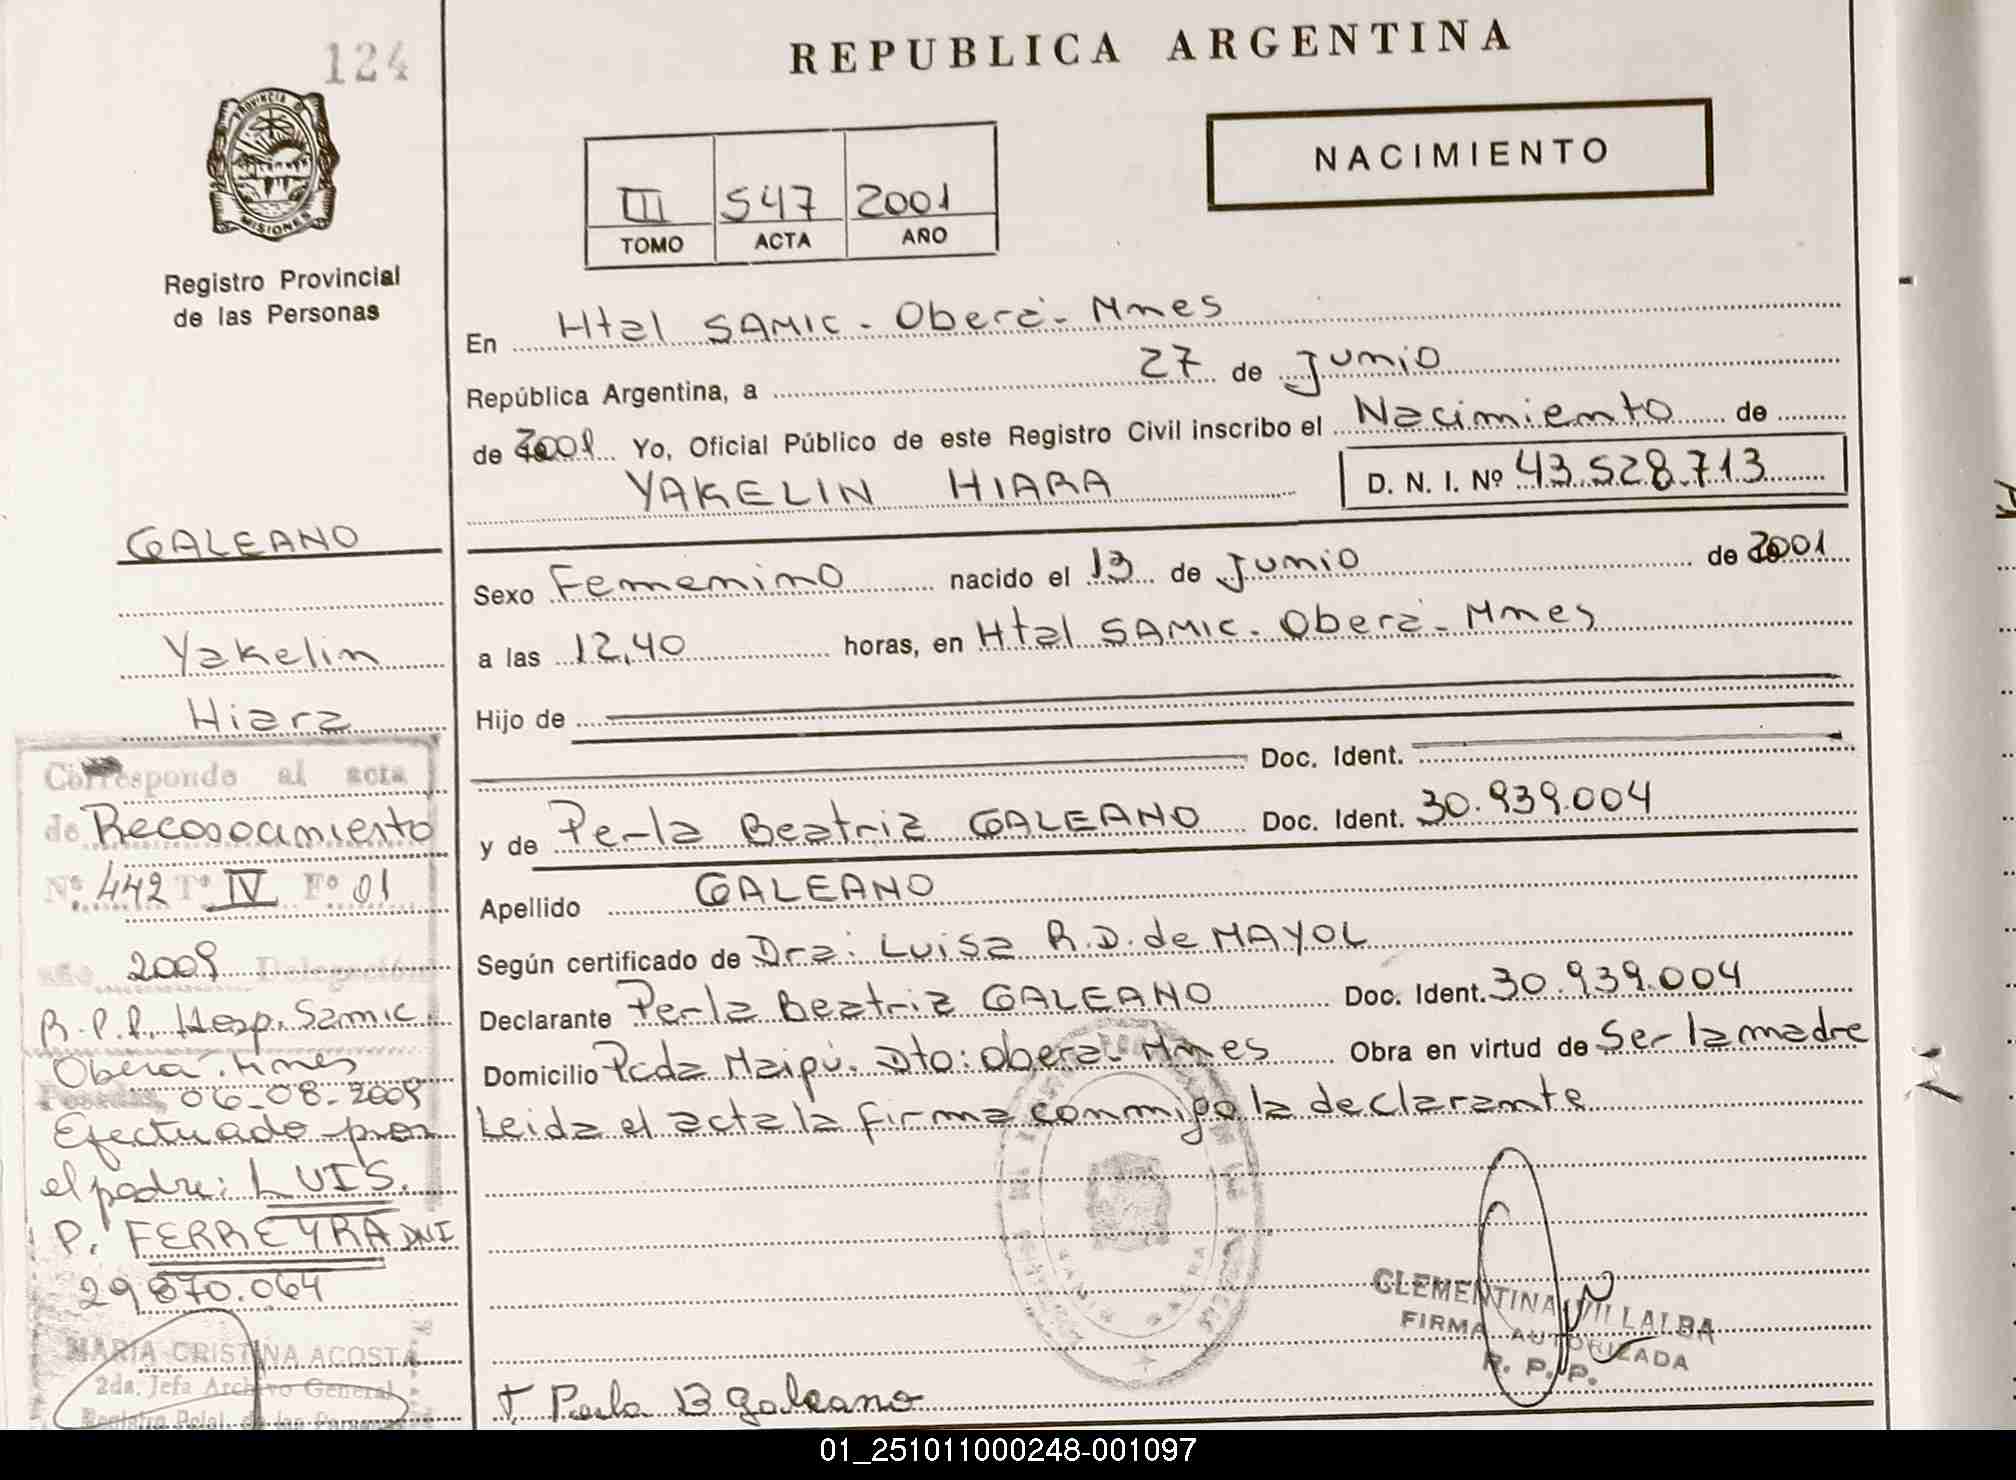 124
PROVINCIA DE
MISIONES
Registro Provincial
de las Personas
GALEANO
Yakelin
Hiara
Corresponde al acta
de Reconocimiento
Nº 442 Tº IV Fº 01
año 2009 Delegación
R.P.P. Hosp. Samic
Oberá. Mnes
Posadas, 06-08-2009
Efectuado por
el padre: LUIS.
P. FERREYRA DNI
29870.064
MARIA CRISTINA ACOSTA
2da. Jefa Archivo General
Registro Pcial. de las Personas
REPUBLICA ARGENTINA
III 547 2001
TOMO ACTA AÑO
NACIMIENTO
En Htal SAMIC - Oberá - Mnes
República Argentina, a 27 de Junio
de 2001 Yo, Oficial Público de este Registro Civil inscribo el Nacimiento de
YAKELIN HIARA D. N. I. Nº 43.528.713
Sexo Femenino nacido el 13 de Junio de 2001
a las 12,40 horas, en Htal SAMIC - Oberá - Mnes
Hijo de
Doc. Ident.
y de Perla Beatriz GALEANO Doc. Ident. 30.939.004
Apellido GALEANO
Según certificado de Dra: Luisa R.D. de MAYOL
Declarante Perla Beatriz GALEANO Doc. Ident. 30.939.004
Domicilio Pcda Maipú. Dto: Oberá - Mnes Obra en virtud de Ser la madre
Leida el acta la firma conmigo la declarante
CLEMENTINA VILLALBA
FIRMA AUTORIZADA
R. P. P.
Perla B Galeano
01_251011000248-001097